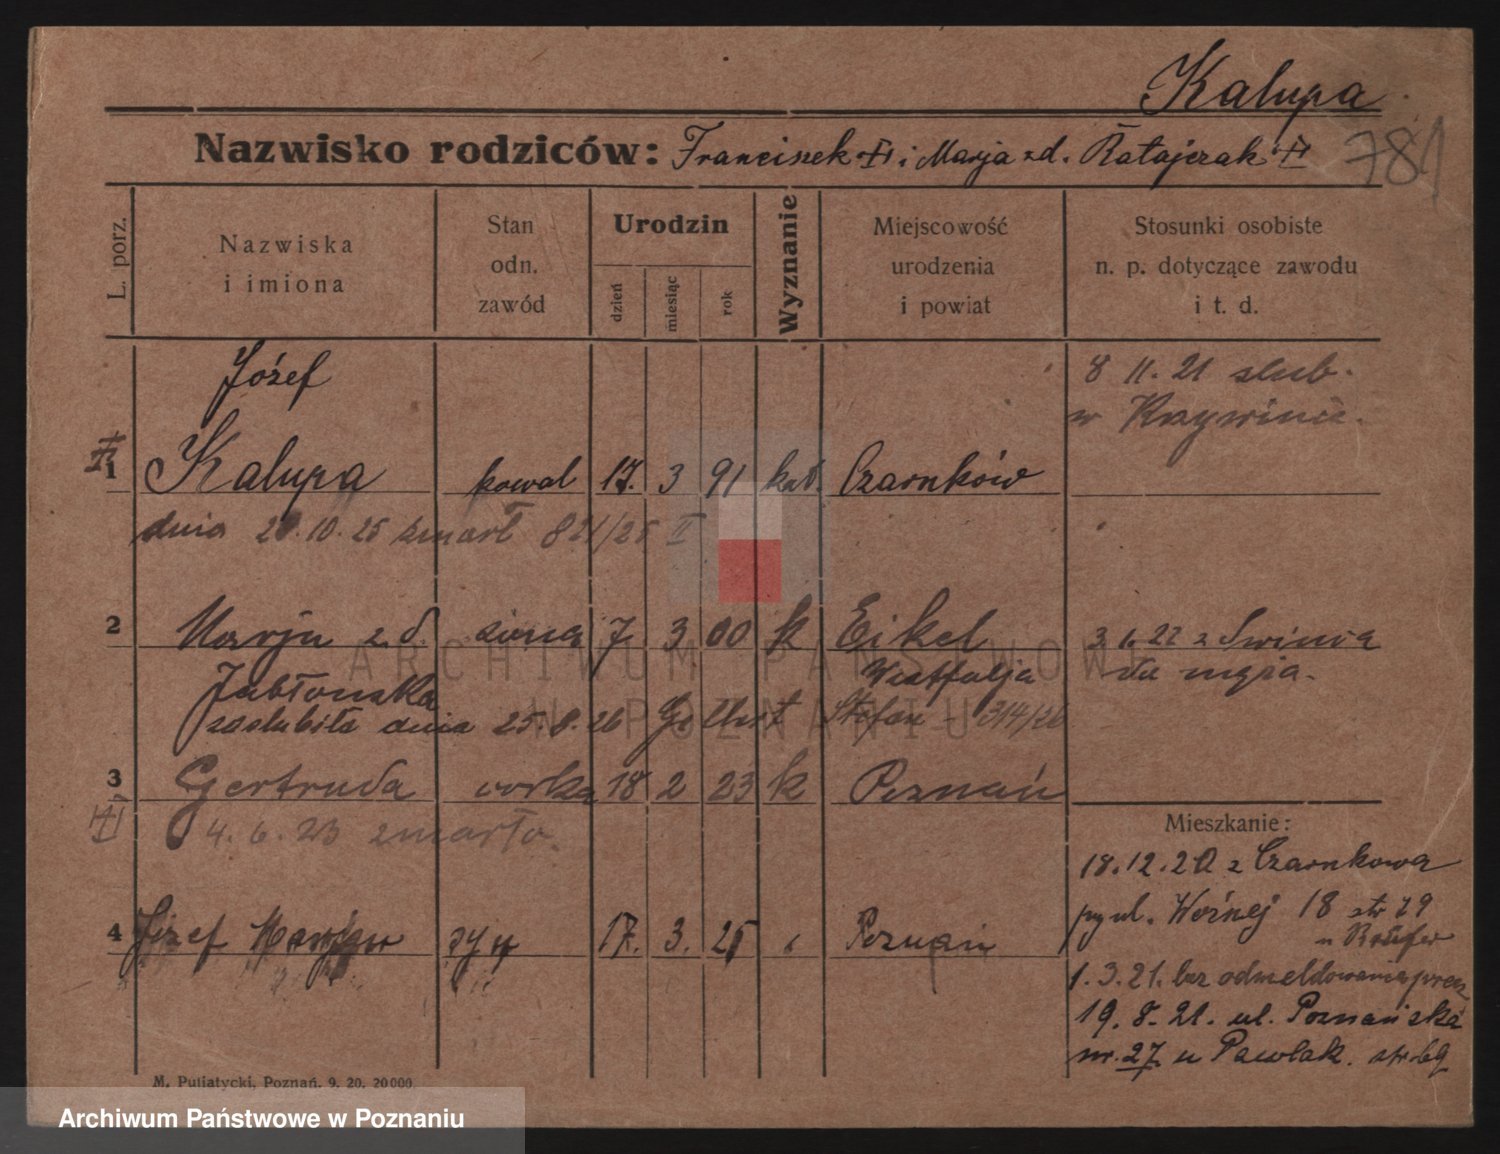 Kalupa
781
Nazwisko rodziców: Franciszek i Marja zd. Ratajczak
L. porz.
Nazwiska i imiona
Stan odn. zawód
Urodzin
dzień
miesiąc
rok
Wyznanie
Miejscowość urodzenia i powiat
Stosunki osobiste n. p. dotyczące zawodu i t. d.
Józef
8 11. 21 slub.
w Krzywiniu.
1 Kalupa kowal 17. 3 91 kat. Czarnków
dnia 10. 25 zmarł 821/25 II
2 Marja z d. żona 7 3 00 k Eikel 3 6 22 z
Jabłonska Westfalja do męża.
zaslubiła dnia 25. 8. 26 Stefan - 314/26
3 Gertruda corka 18 2 23 k Poznań
4. 6. 23 zmarło.
Mieszkanie:
18. 12. 20 z Czarnkowa
4 Józef syn 17. 3. 25 Poznań
przy ul. Woźnej 18 str 79
1. 3. 21. bez odmeldowania przez
19. 8. 21. ul. Poznańska
nr. 27 u Pawlak.
M. Putiatycki, Poznań. 9. 20. 20000.
ARCHIWUM PAŃSTWOWE
W POZNANIU
Archiwum Państwowe w Poznaniu